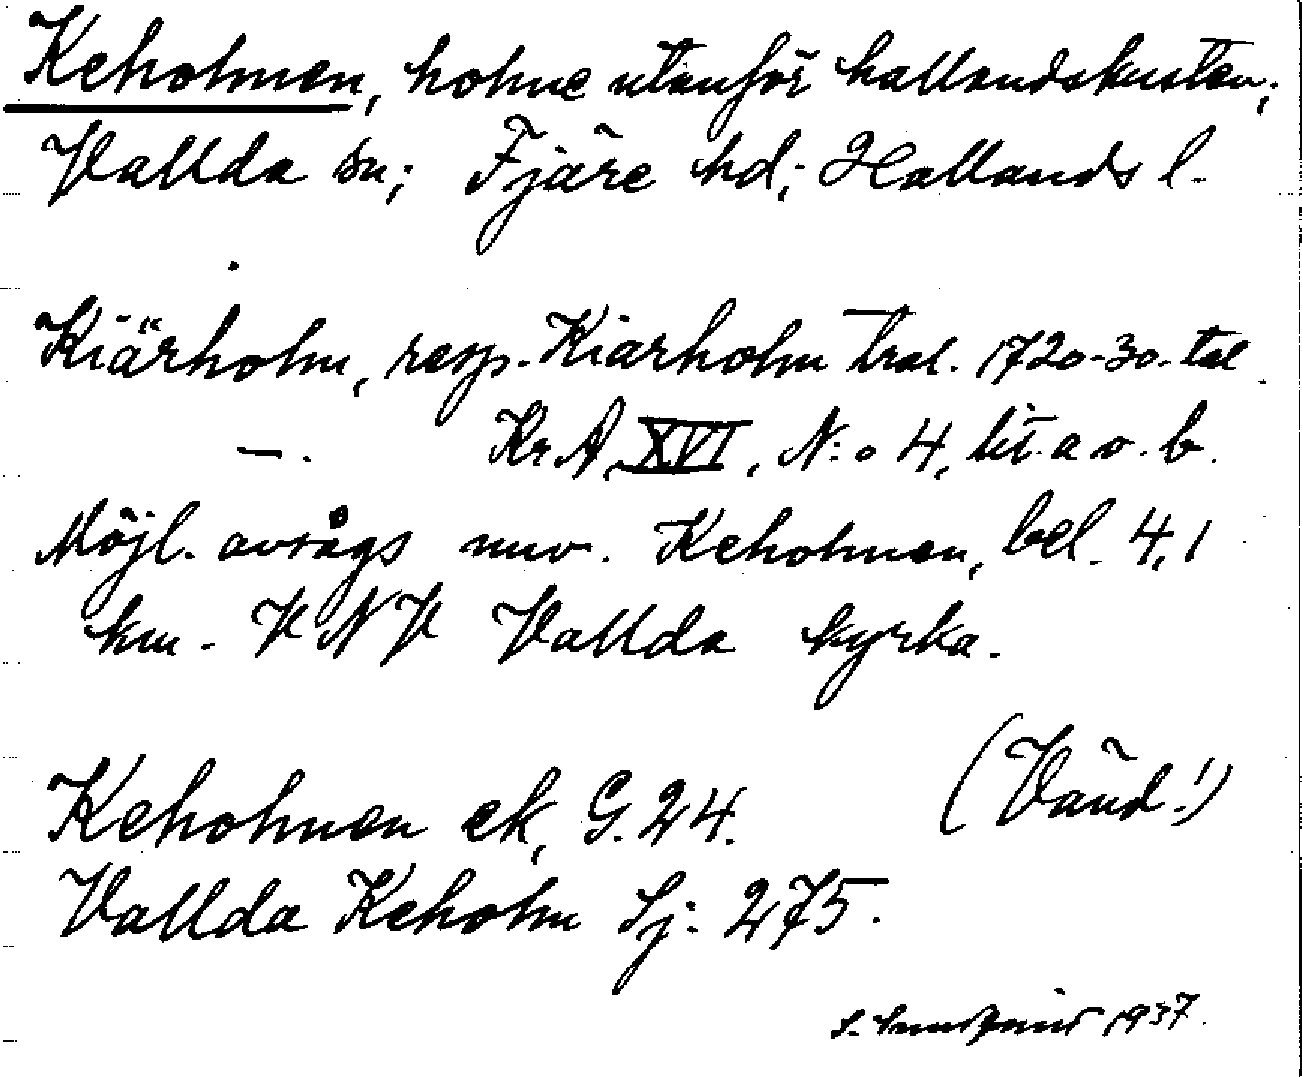 Keholmen, holme utanför hallandskusten;
Vallda sn; Fjäre hd; Hallands l.
Kiärholm, resp. Kiarholm Kral. 1720-30-tal.
—. KrA, XVI, N:o 4, lit. a o. b.
Möjl. avsågs nuv. Keholmen, bel. 4,1
km. VNV Vallda kyrka.
(Vänd!)
Keholmen ek, G. 24.
Vallda Keholm Sj: 275.
1937.